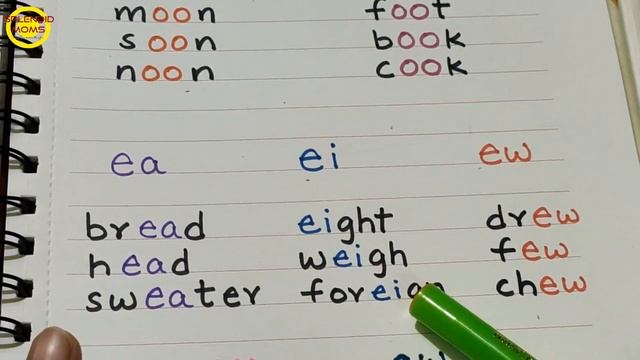 SPLENDID MOMS
moon foot
soon book
noon cook
ea ei ew
bread eight drew
head weigh few
sweater foreign chew